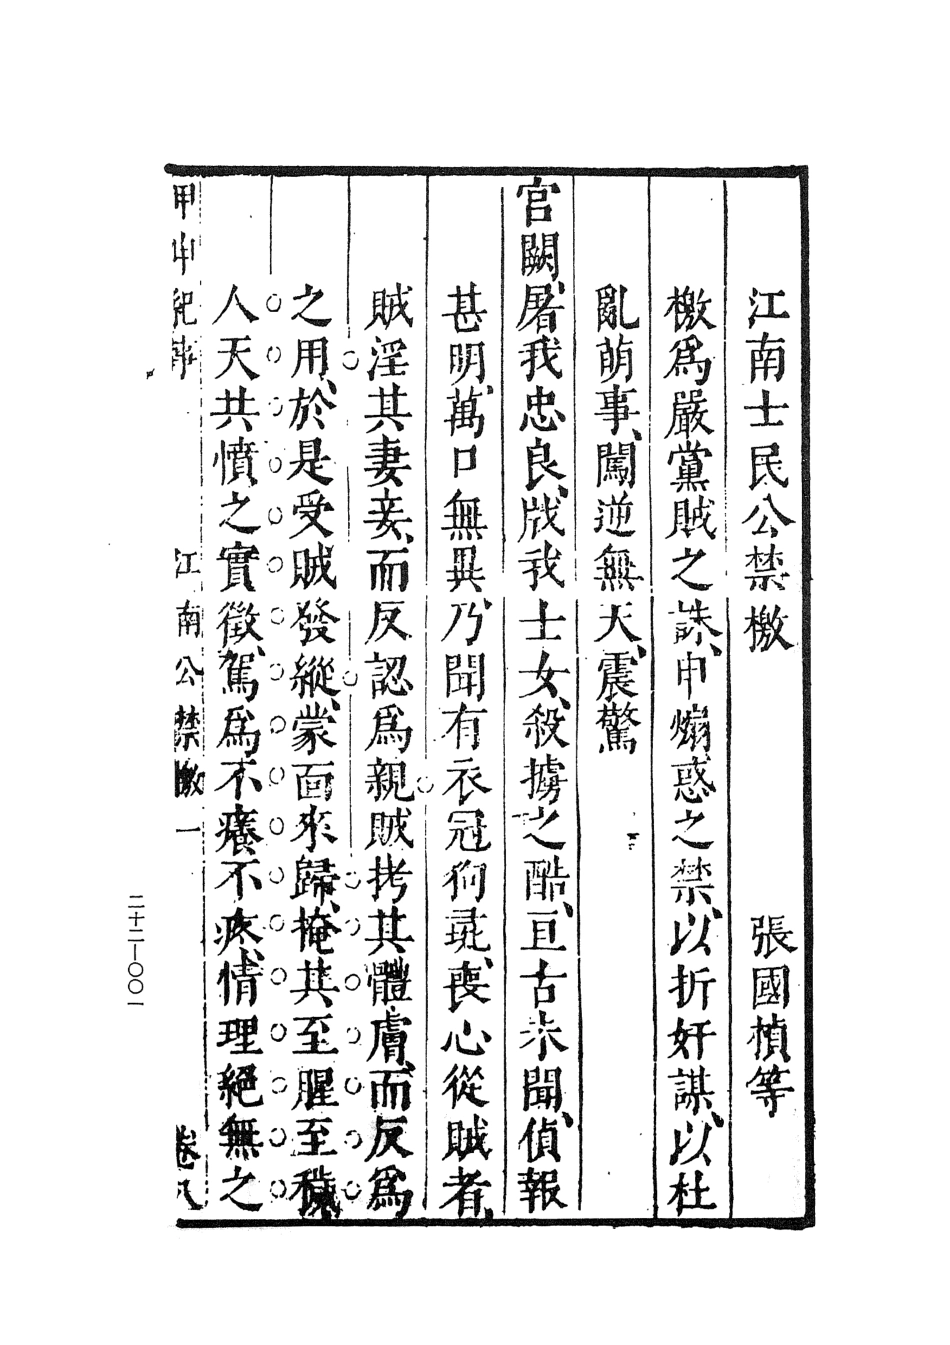 江南士民公禁檄　張國楨等
檄爲嚴黨賊之誅、申煽惑之禁、以折奸謀、以杜
亂萌事、闖逆無天、震驚
宮闕、屠我忠良、戕我士女、殺擄之酷、亘古未聞、偵報
甚明、萬口無異、乃聞有衣冠狗彘、喪心從賊者、
賊淫其妻妾、而反認爲親、賊拷其體膚、而反爲
之用、於是受賊發縱、蒙面來歸、掩其至腥至穢
人天共憤之實徵、駕爲不癢不疼、情理絕無之
甲申紀事　江南公禁檄一　卷八
二十二—〇〇一